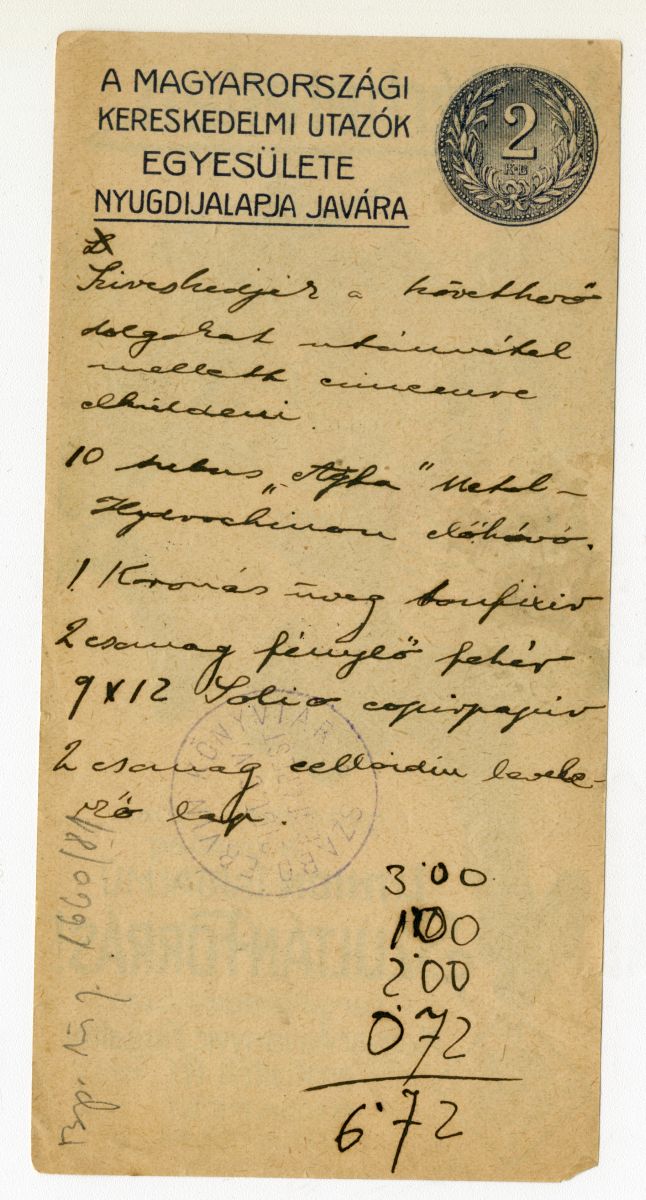 A MAGYARORSZÁGI
KERESKEDELMI UTAZÓK
EGYESÜLETE
NYUGDIJALAPJA JAVÁRA
2
Sziveskedjék a következő
dolgokat utánvétel
mellett cimemre
elküldeni
10 "Agfa" Metol-
Hydrochinon előhívó.
1 Koronás üveg tonfixir
2 csomag fénylő fehér
9x12 Solio copirpapir
2 csomag celloidin levele-
ző lap.
KÖNYVTÁR
SZABÓ ERVIN
3·00
1 00
2·00
0·72
6·72